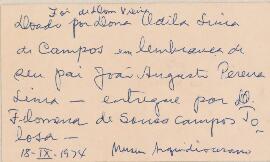 Foi de Dom Vieira
Doado por Dona Odila Lima
de Campos em lembrança de
seu pai João Augusto Pereira
Lima — entregue por D.
Filomena de Sousa Campos To
losa —
18-IX-1974 Museu Arquidiocesano